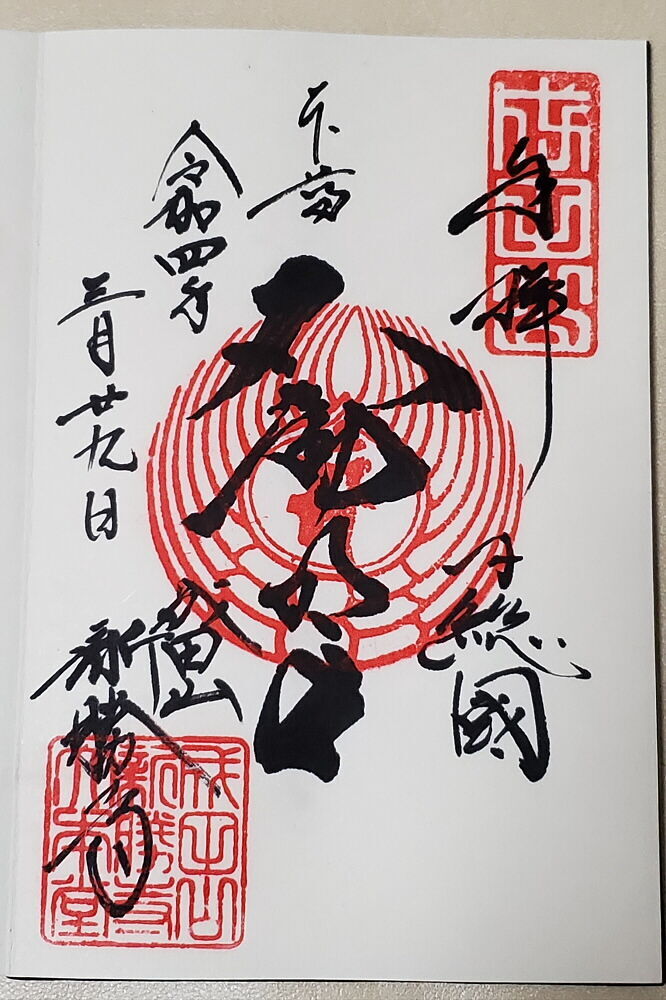 成田山
奉拝
下総國
令和四年
三月廿九日
成田山
新勝寺
成田山
新勝寺
大本堂